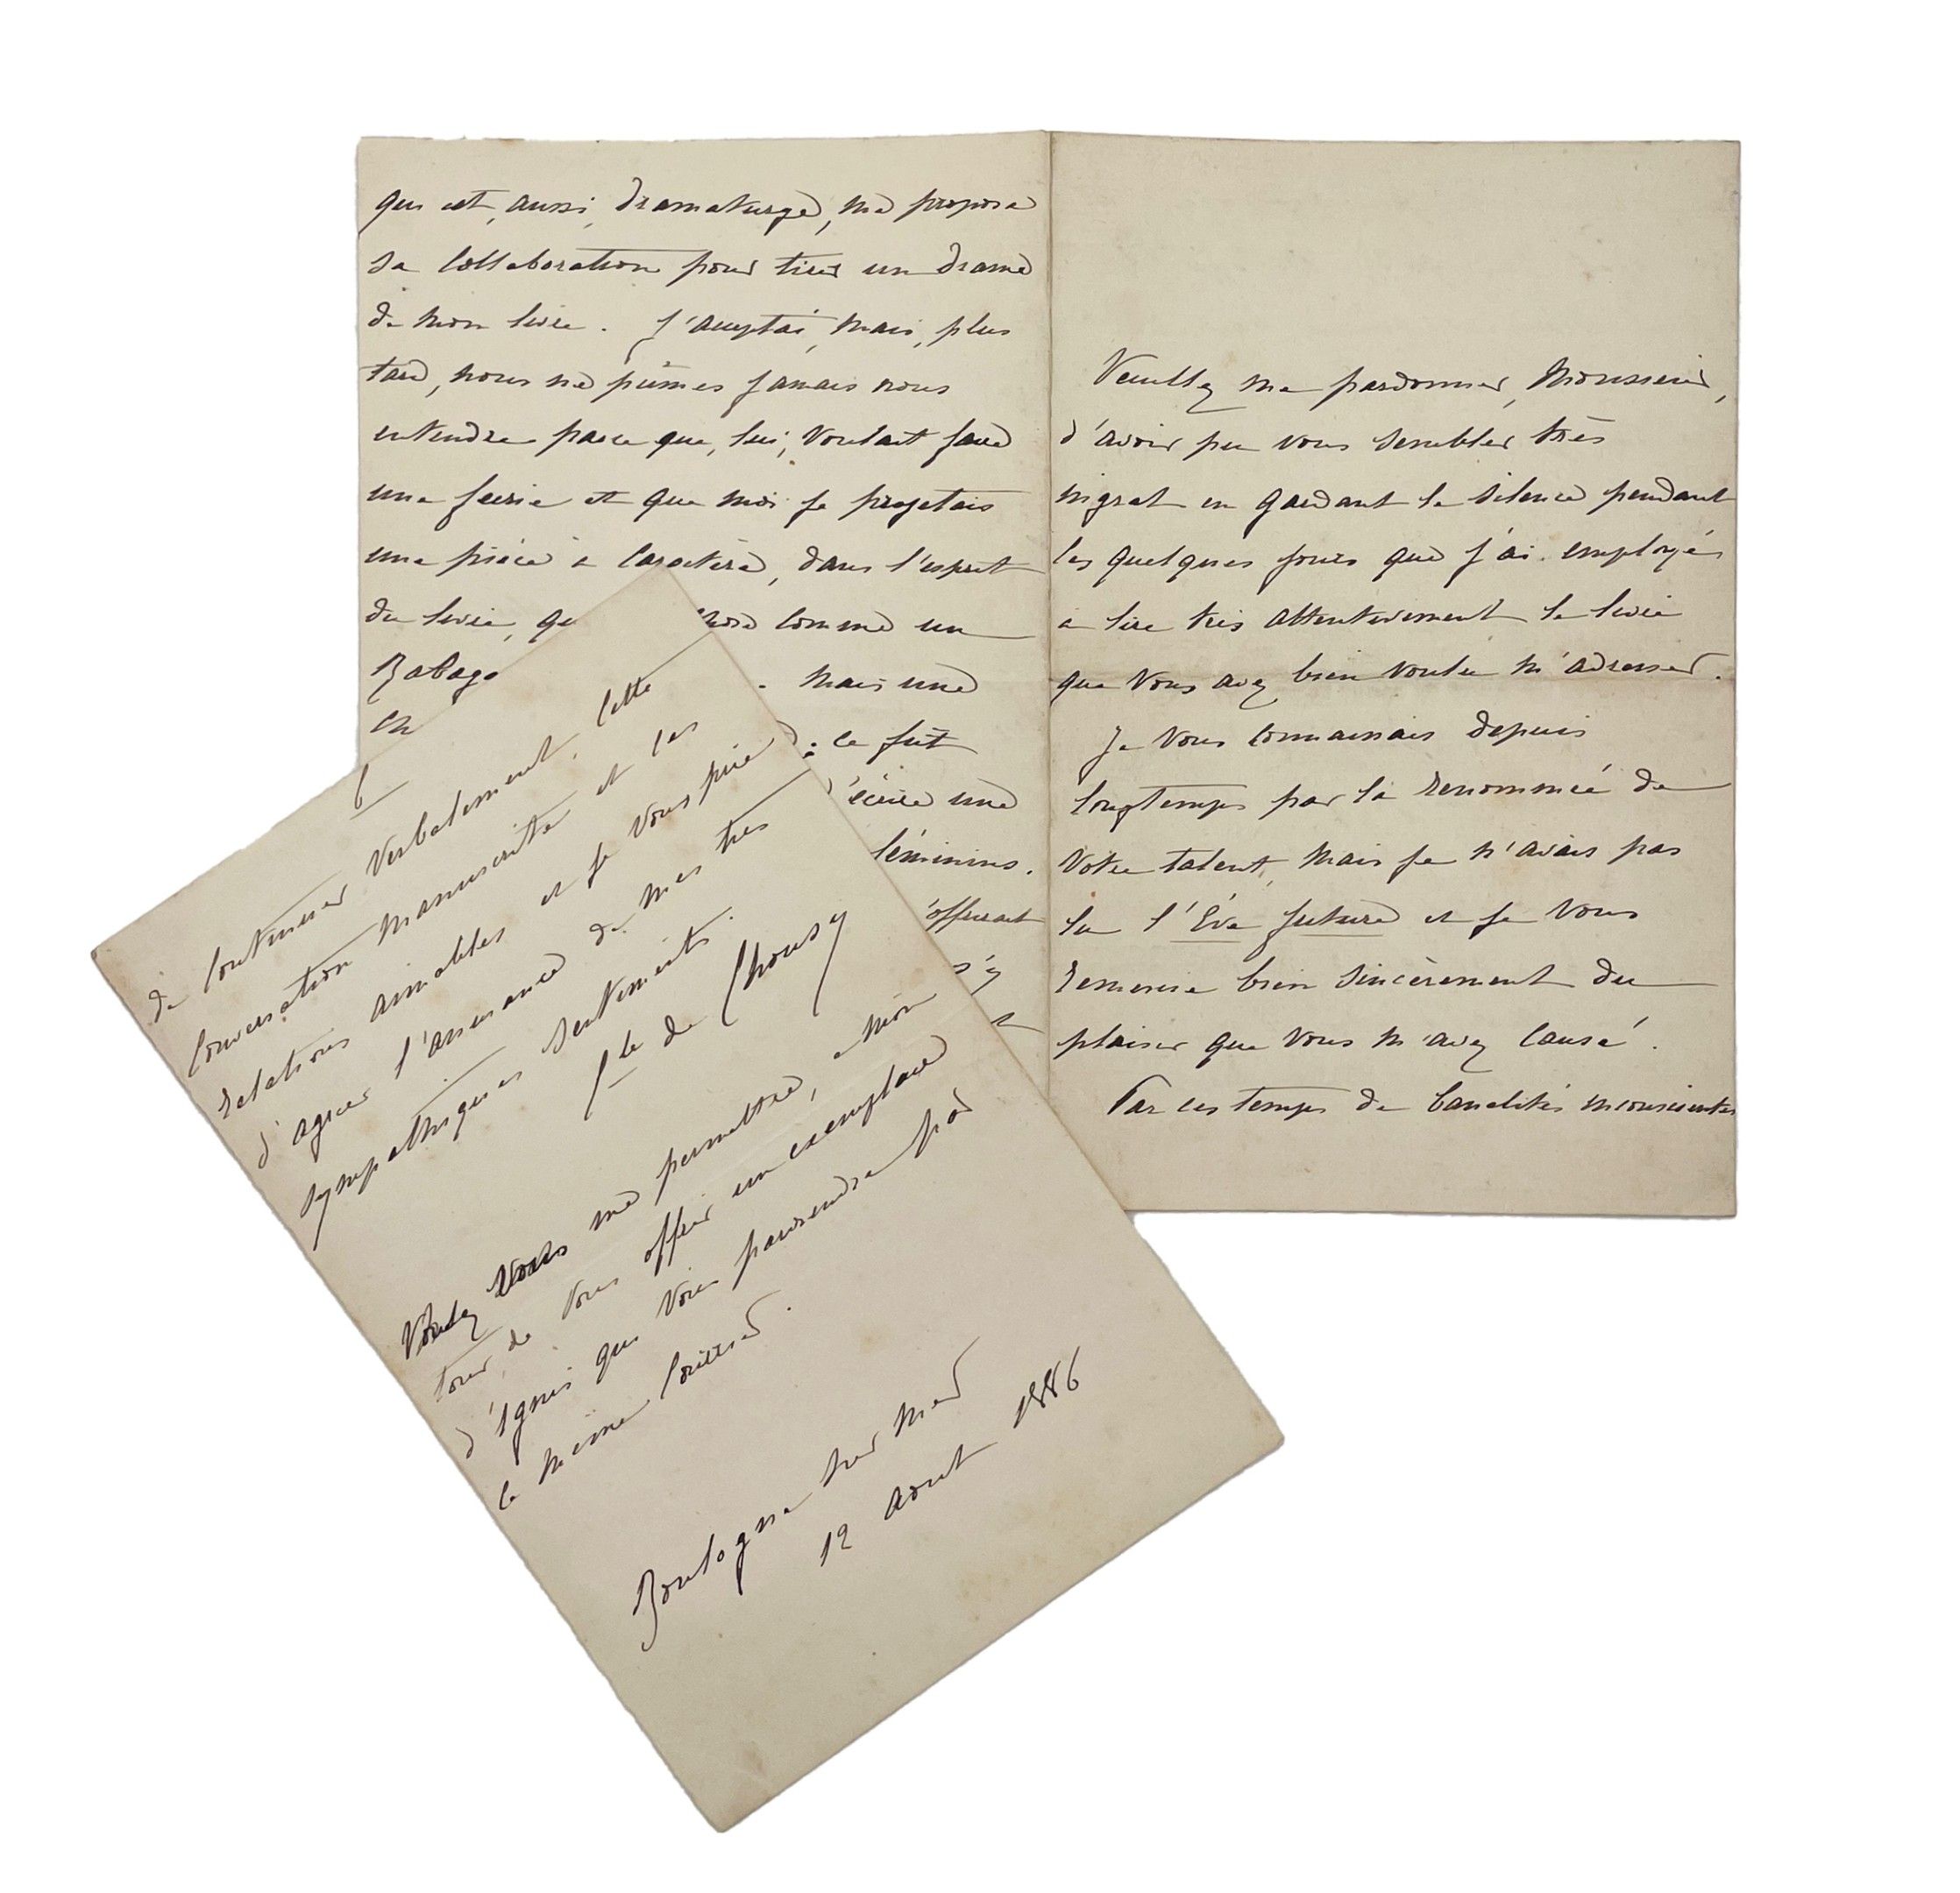 Veuillez me pardonner, Monsieur,
d'avoir pu vous sembler très
ingrat en gardant le silence pendant
les quelques jours que j'ai employés
à lire très attentivement le livre
que vous avez bien voulu m'adresser.
Je vous connaissais depuis
longtemps par la renommée de
votre talent, mais je n'avais pas
lu l'Ève future et je vous
remercie bien sincèrement du
plaisir que vous m'avez causé.
Par ces temps de banalités inconscientes
qui est, aussi, dramaturge, me proposa
sa collaboration pour tirer un drame
de mon livre. J'acceptai, mais, plus
tard, nous ne pûmes jamais nous
entendre parce que, lui, voulait faire
une féerie et que moi je projetais
une pièce à caractère, dans l'esprit
du livre, comme un
mais une
ce fut
écrire une
féminins.
offrirait
s'y
de continuer verbalement, cette
conversation manuscrite et les
relations aimables et je vous prie
d'agréer l'assurance de mes très
sympathiques sentiments.
Cte de Chousy
Voulez vous me permettre, à mon
tour, de vous offrir un exemplaire
d'Ignis que vous parviendra par
le même courrier.
Boulogne sur mer
12 aout 1886